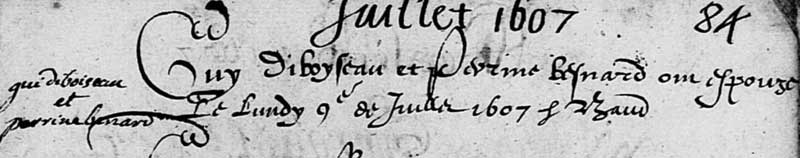 Juillet 1607 84
Guy Diboyseau et Perrine besnard ont espouze
gui diboiseau
et
perrine besnard
Le Lundy 9e de Juillet 1607